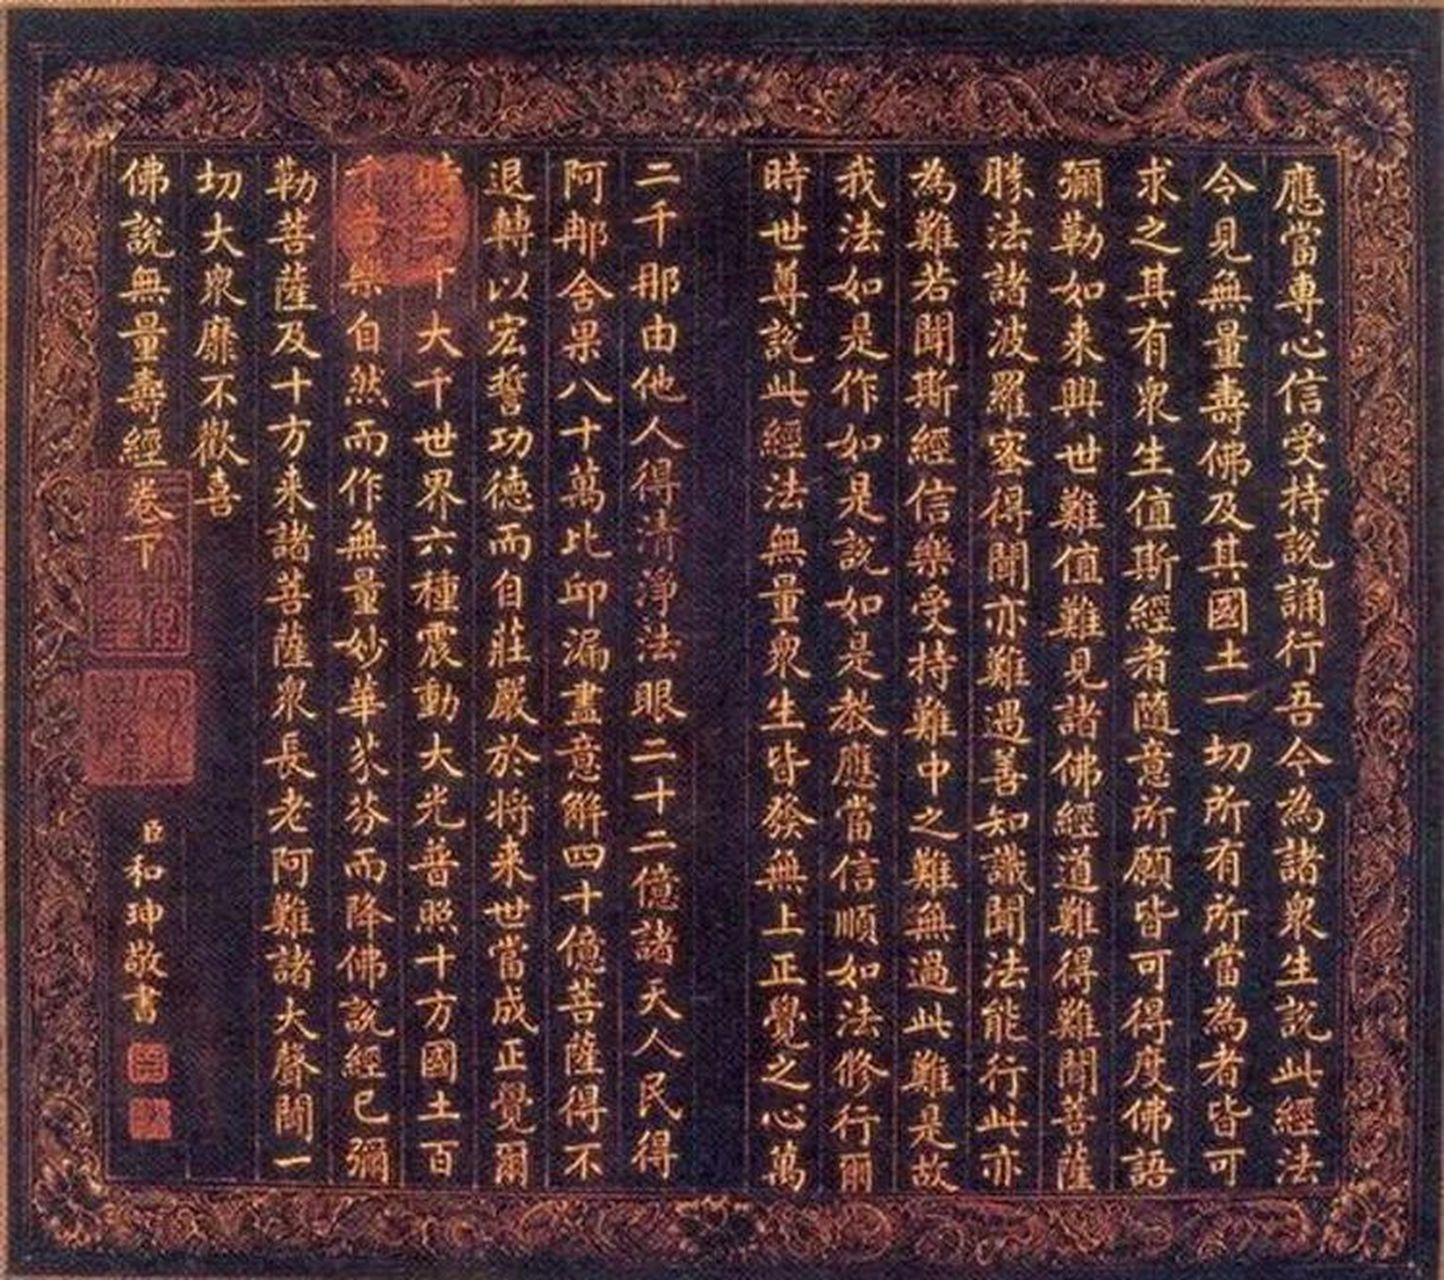 應當專心信受持說誦行吾今為諸衆生說此經法
令見無量壽佛及其國土一切所有所當為者皆可
求之其有衆生值斯經者隨意所願皆可得度佛語
彌勒如来興世難值難見諸佛經道難得難聞菩薩
勝法諸波羅蜜得聞亦難遇善知識聞法能行此亦
為難若聞斯經信樂受持難中之難無過此難是故
我法如是作如是說如是教應當信順如法修行爾
時世尊說此經法無量衆生皆發無上正覺之心萬
二千那由他人得清淨法眼二十二億諸天人民得
阿那舍果八十萬比邱漏盡意解四十億菩薩得不
退轉以宏誓功德而自莊嚴於將来世當成正覺爾
時三千大千世界六種震動大光普照十方國土百
千音樂自然而作無量妙華芬芬而降佛說經已彌
勒菩薩及十方来諸菩薩衆長老阿難諸大聲聞一
切大衆靡不歡喜
佛說無量壽經卷下
臣和珅敬書